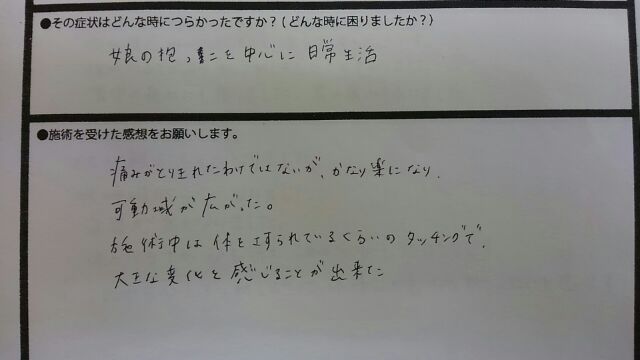 ●その症状はどんな時につらかったですか？(どんな時に困りましたか？)
娘の抱っこを中心に日常生活
●施術を受けた感想をお願いします。
痛みがとりきれたわけではないが、かなり楽になり、
可動域が広がった。
施術中は体をさすられているくらいのタッチングで、
大きな変化を感じることが出来た